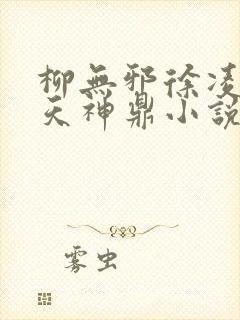 柳無邪徐凌
天神鼎小說
雾虫